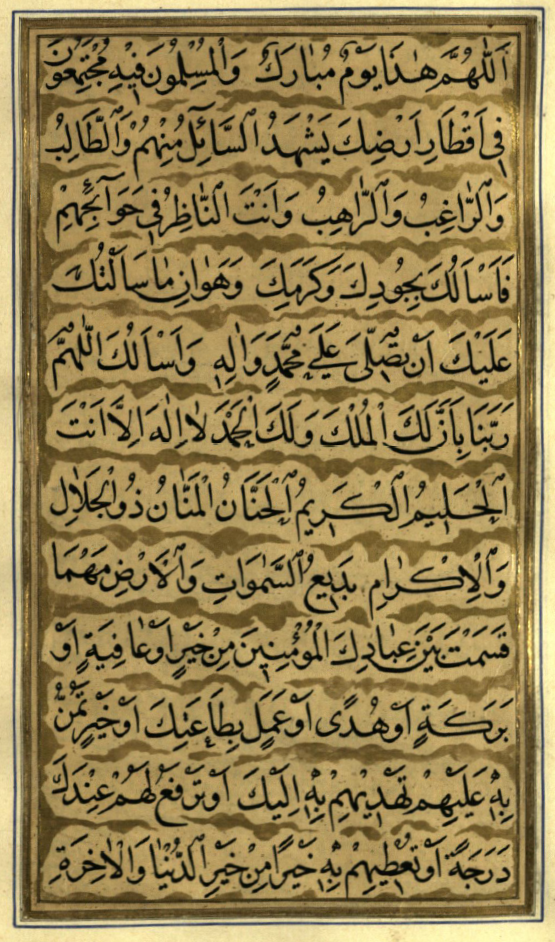 اَللّٰهُمَّ هٰذَا يَوْمٌ مُبٰارَكٌ وَالْمُسْلِمُونَ فِيهِ مُجْتَمِعُونَ
فِي اَقْطٰارِ اَرْضِكَ يَشْهَدُ السَّآئِلُ مِنْهُمْ وَالطّٰالِبُ
وَالرّٰاغِبُ وَالرّٰاهِبُ وَاَنْتَ النّٰاظِرُ فِي حَوَآئِجِهِمْ
فَاَسْاَلُكَ بِجُودِكَ وَكَرَمِكَ وَهَوٰانِ مٰا سَاَلْتُكَ
عَلَيْكَ اَنْ تُصَلِّيَ عَلٰى مُحَمَّدٍ وَاٰلِهِ وَاَسْاَلُكَ اللّٰهُمَّ
رَبَّنَا بِاَنَّ لَكَ الْمُلْكَ وَلَكَ الْحَمْدَ لٰا اِلٰهَ اِلَّا اَنْتَ
الْحَلِيمُ الْكَرِيمُ الْحَنّٰانُ الْمَنّٰانُ ذُو الْجَلٰالِ
وَالْاِكْرٰامِ بَدِيعُ السَّمٰوٰاتِ وَالْاَرْضِ مَهْمَا
قَسَمْتَ بَيْنَ عِبٰادِكَ الْمُؤْمِنِينَ مِنْ خَيْرٍ اَوْ عٰافِيَةٍ اَوْ
بَرَكَةٍ اَوْ هُدًى اَوْ عَمَلٍ بِطٰاعَتِكَ اَوْ خَيْرٍ تَمُنُّ
بِهِ عَلَيْهِمْ تَهْدِيهِمْ بِهِ اِلَيْكَ اَوْ تَرْفَعُ لَهُمْ عِنْدَكَ
دَرَجَةً اَوْ تُعْطِيهِمْ بِهِ خَيْرًا مِنْ خَيْرِ الدُّنْيٰا وَالْاٰخِرَةِ